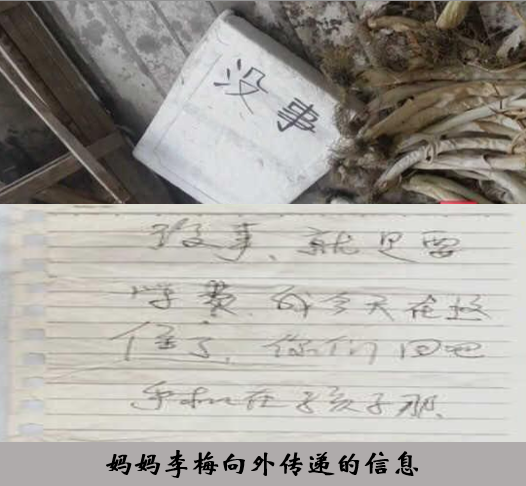 没事
没事、就是要
学费.我今天在这
住了,你们回吧
手机在孩子那.
妈妈李梅向外传递的信息